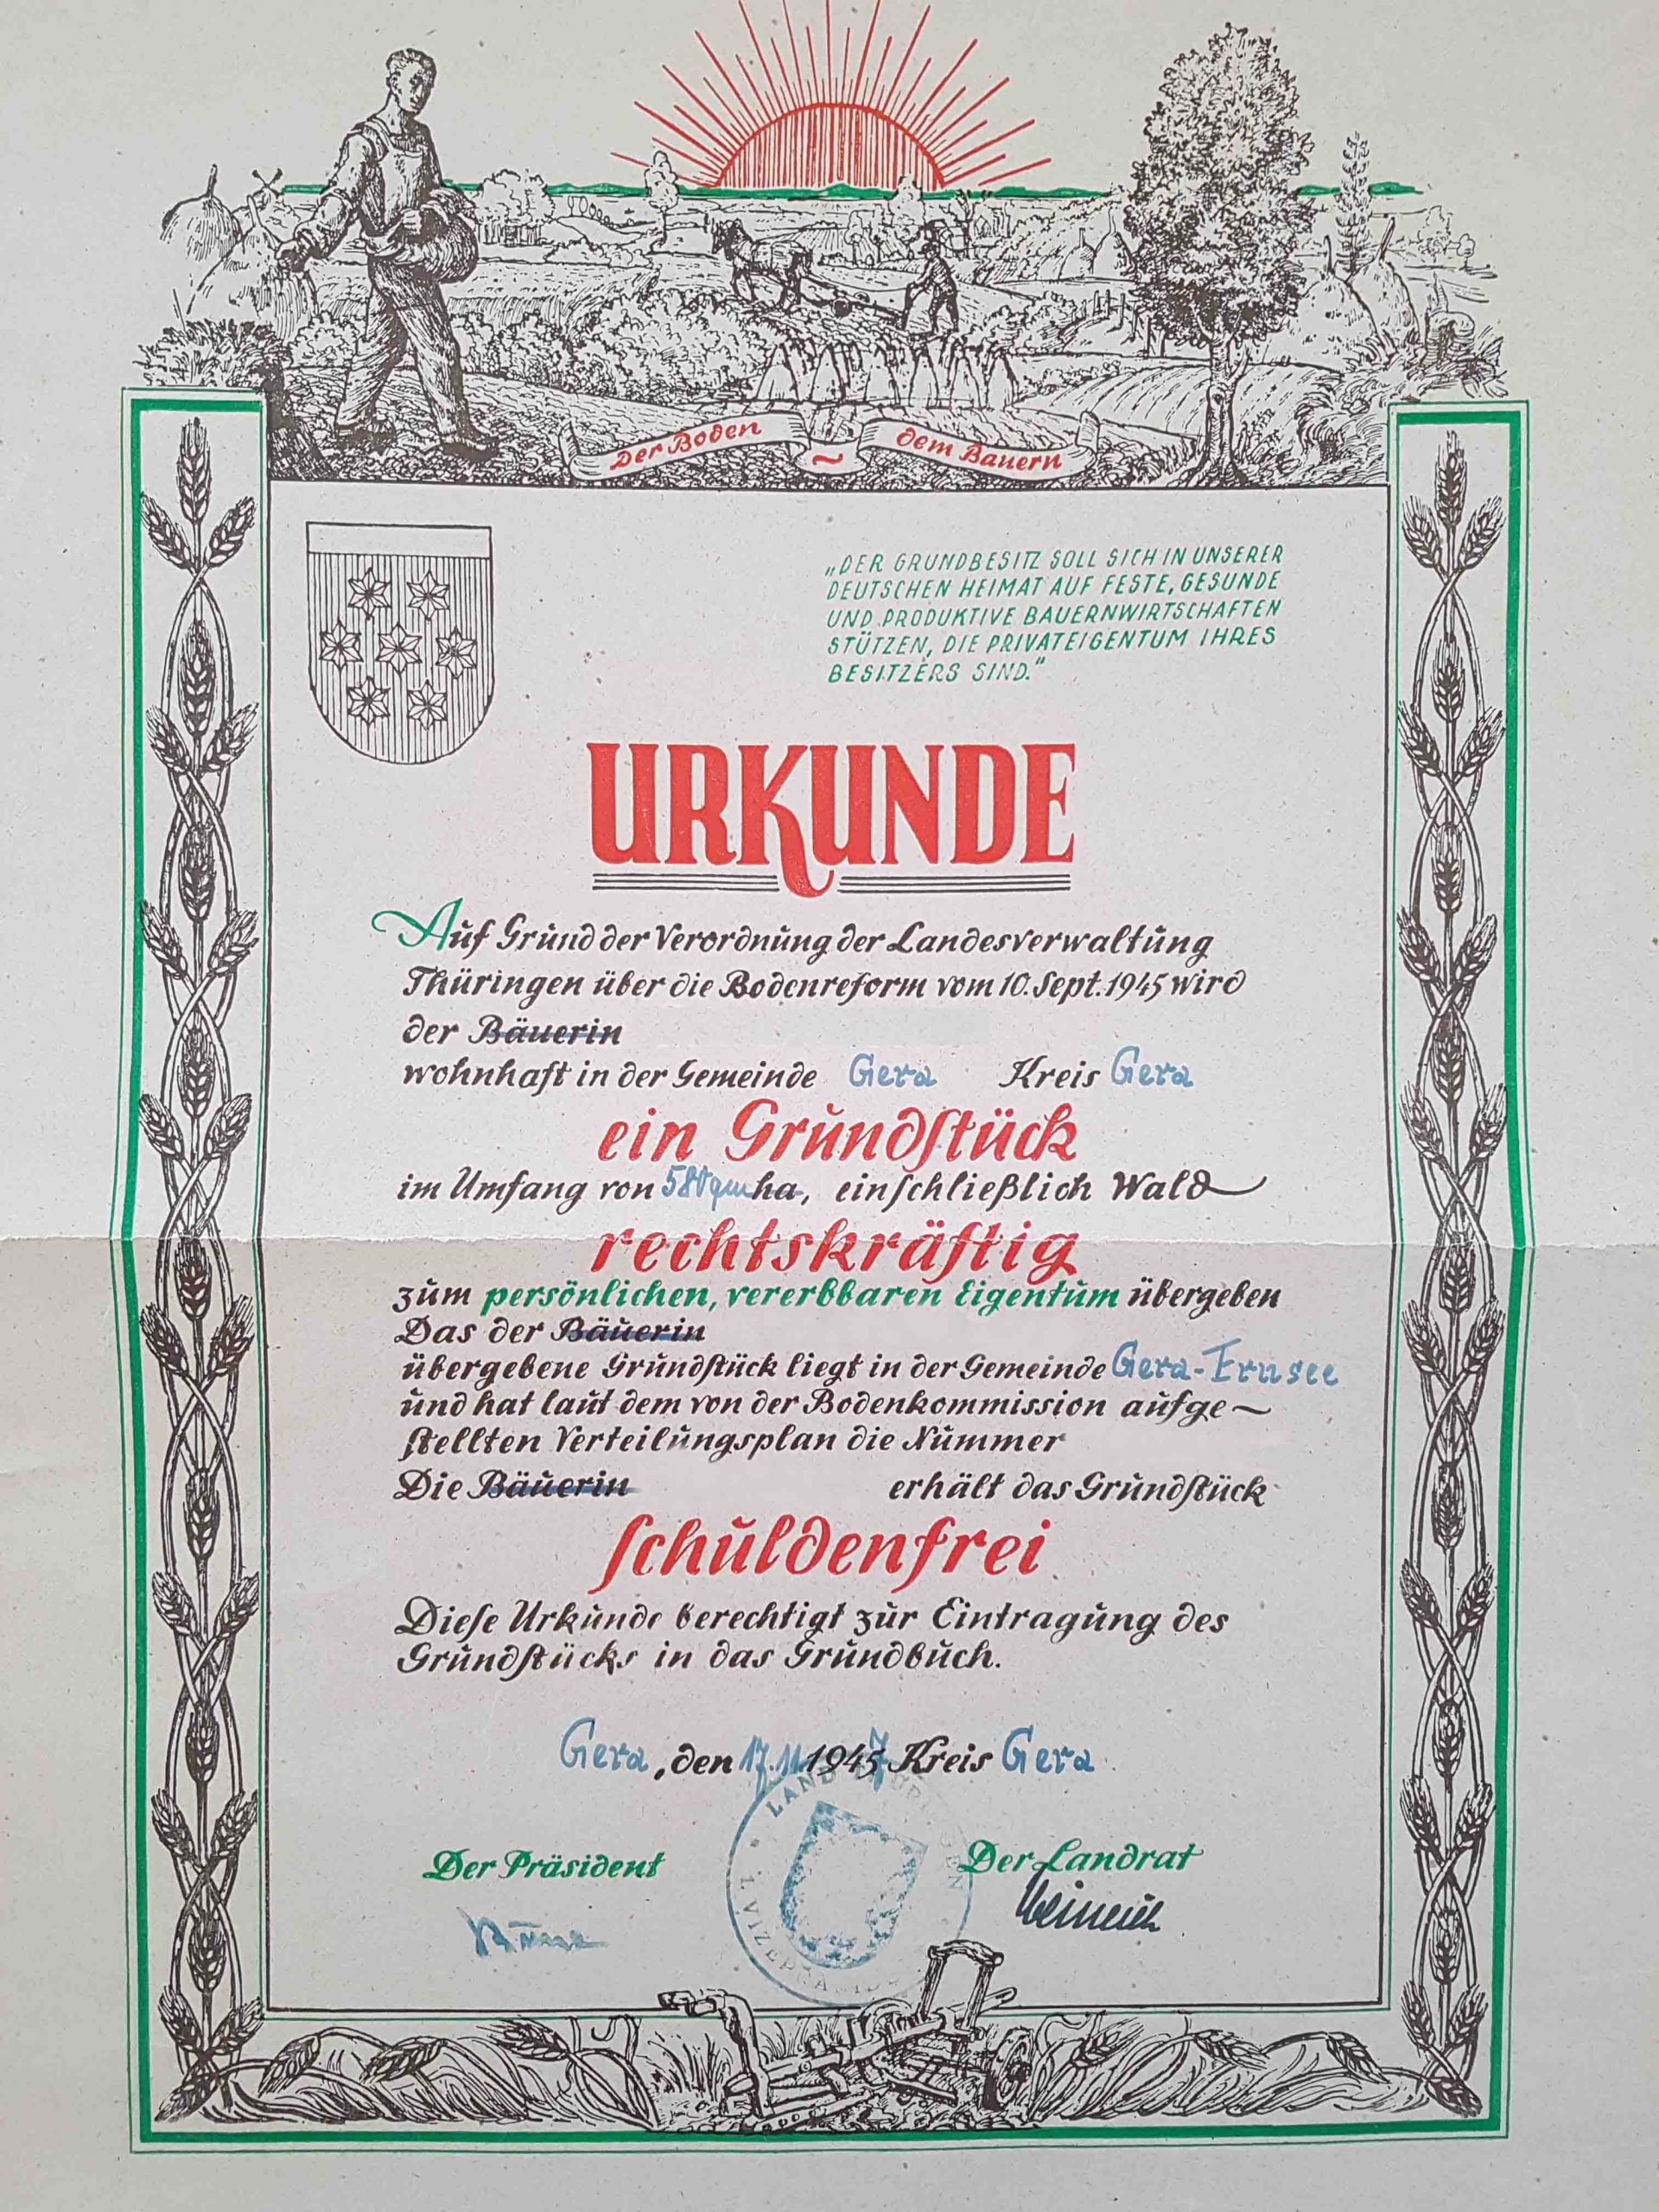 Der Boden ~ dem Bauern
„DER GRUNDBESITZ SOLL SICH IN UNSERER
DEUTSCHEN HEIMAT AUF FESTE, GESUNDE
UND PRODUKTIVE BAUERNWIRTSCHAFTEN
STÜTZEN, DIE PRIVATEIGENTUM IHRES
BESITZERS SIND."
URKUNDE
Auf Grund der Verordnung der Landesverwaltung
Thüringen über die Bodenreform vom 10. Sept. 1945 wird
der Bäuerin
wohnhaft in der Gemeinde Gera Kreis Gera
ein Grundſtück
im Umfang von qm ha, einſchließlich Wald
rechtskräftig
zum persönlichen, vererbbaren Eigentum übergeben
Das der Bäuerin
übergebene Grundſtück liegt in der Gemeinde Gera-Ernsee
und hat laut dem von der Bodenkommission aufge~
ſtellten Verteilungsplan die Nummer
Die Bäuerin erhält das Grundſtück
ſchuldenfrei
Dieſe Urkunde berechtigt zur Eintragung des
Grundſtücks in das Grundbuch.
Gera, den 17.11.1947 Kreis Gera
LAND
Der Präsident Der Landrat